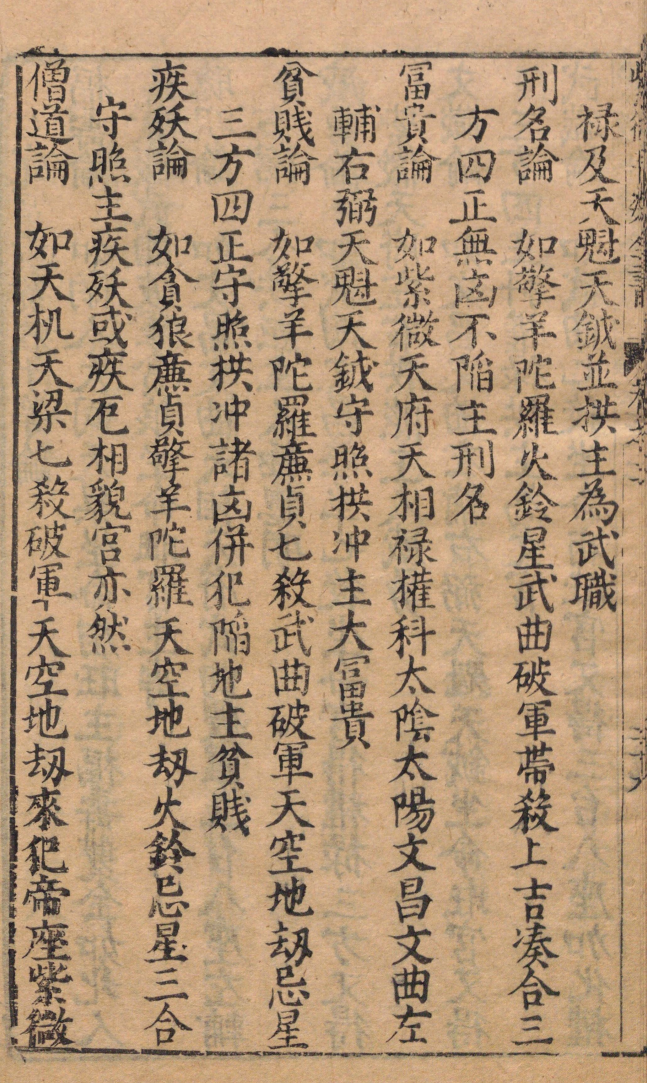 禄及天魁天鉞並拱主為武職
刑名論　如擎羊陀羅火鈴星武曲破軍帶殺上吉凑合三
方四正無凶不陷主刑名
冨貴論　如紫微天府天相禄權科太陰太陽文昌文曲左
輔右弼天魁天鉞守照拱冲主大冨貴
貧賎論　如擎羊陀羅亷貞七殺武曲破軍天空地刼忌星
三方四正守照拱冲諸凶併犯陷地主貧賎
疾殀論　如貪狼亷貞擎羊陀羅天空地刼火鈴忌星三合
守照主疾殀或疾厄相貌宮亦然
僧道論　如天机天梁七殺破軍天空地刼來犯帝座紫微